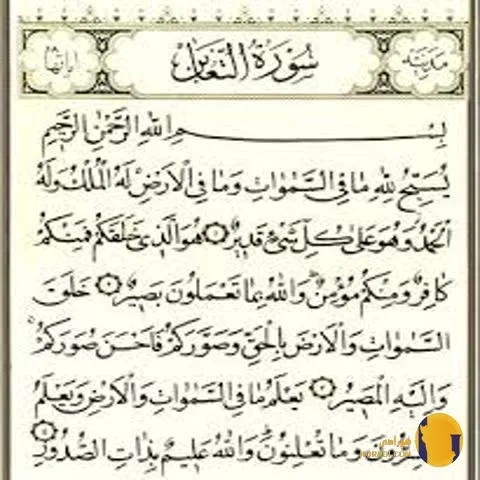 مدنیة سورة التغابن آیاتها ۱۸
بسم الله الرحمن الرحیم
یُسَبِّحُ لِلّٰهِ مَا فِی السَّمٰوَاتِ وَمَا فِی الْاَرْضِ لَهُ الْمُلْكُ وَلَهُ
الْحَمْدُ وَهُوَ عَلٰی كُلِّ شَیْءٍ قَدِیرٌ ۱ هُوَ الَّذِی خَلَقَكُمْ فَمِنْكُمْ
كَافِرٌ وَمِنْكُمْ مُؤْمِنٌ وَاللّٰهُ بِمَا تَعْمَلُونَ بَصِیرٌ ۲ خَلَقَ
السَّمٰوَاتِ وَالْاَرْضَ بِالْحَقِّ وَصَوَّرَكُمْ فَاَحْسَنَ صُوَرَكُمْ
وَاِلَیْهِ الْمَصِیرُ ۳ یَعْلَمُ مَا فِی السَّمٰوَاتِ وَالْاَرْضِ وَیَعْلَمُ
وَمَا تُعْلِنُونَ وَاللّٰهُ عَلِیمٌ بِذَاتِ الصُّدُورِ ۴